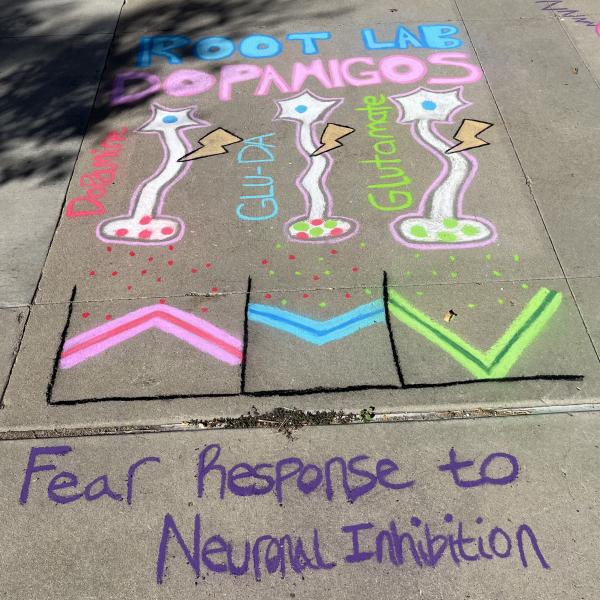 ROOT LAB
DOPAMIGOS
Dopamine
GLU-DA
Glutamate
Fear Response to
Neuronal Inhibition